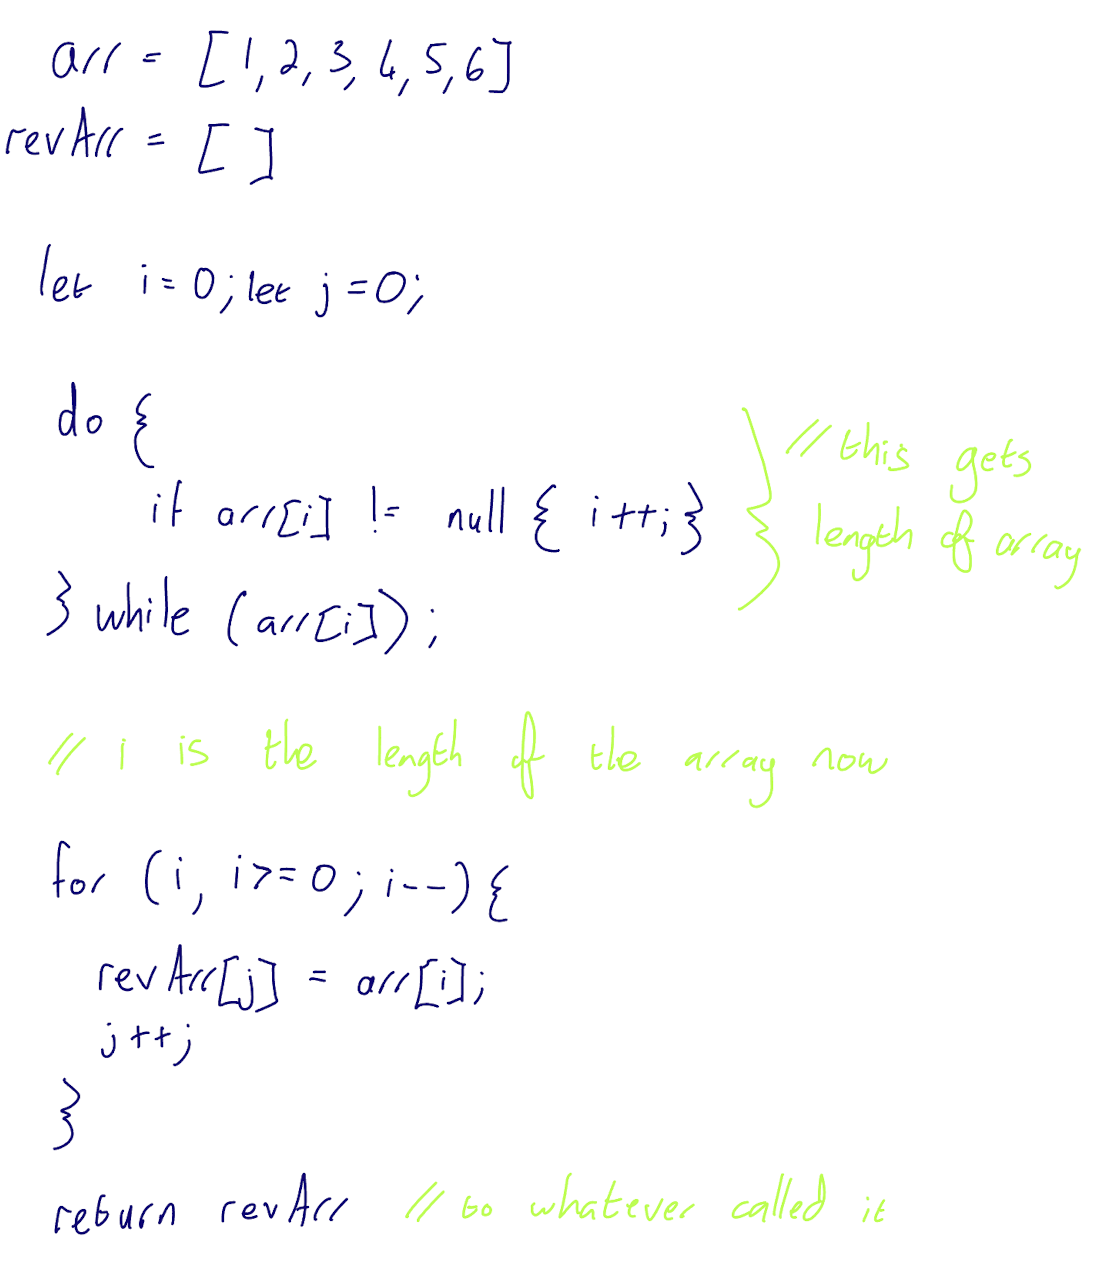 arr = [1,2,3,4,5,6]
revArr = [ ]
let i=0; let j=0;
do {
if arr[i] != null { i++;}
} while (arr[i]);
// this gets
length of array
// i is the length of the array now
for (i, i>=0; i--){
revArr[j] = arr[i];
j++;
}
return revArr // to whatever called it